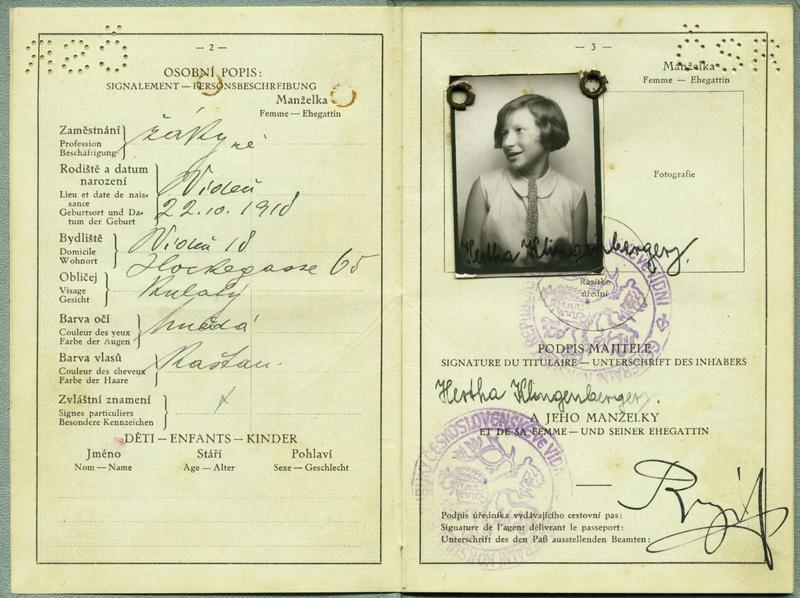 — 2 —
OSOBNÍ POPIS:
SIGNALEMENT — PERSONSBESCHREIBUNG
Manželka
Femme — Ehegattin
Zaměstnání
Profession
Beschäftigung
žákyně
Rodiště a datum
narození
Lieu et date de nais-
sance
Geburtsort und Da-
tum der Geburt
Vídeň
22.10.1918
Bydliště
Domicile
Wohnort
Vídeň 18
Hockegasse 65
Obličej
Visage
Gesicht
kulatý
Barva očí
Couleur des yeux
Farbe der Augen
hnědá
Barva vlasů
Couleur des cheveux
Farbe der Haare
Kaštan.
Zvláštní znamení
Signes particuliers
Besondere Kennzeichen
DĚTI — ENFANTS — KINDER
Jméno Stáří Pohlaví
Nom — Name Age — Alter Sexe — Geschlecht
— 3 —
RSČ
Manželka
Femme — Ehegattin
Fotografie
Hertha Klingenberger.
Razítko
úřední
PODPIS MAJITELE
SIGNATURE DU TITULAIRE — UNTERSCHRIFT DES INHABERS
Hertha Klingenberger.
A JEHO MANŽELKY
ET DE SA FEMME — UND SEINER EHEGATTIN
Podpis úředníka vydávajícího cestovní pas:
Signature de l'agent délivrant le passeport:
Unterschrift des den Paß ausstellenden Beamten: